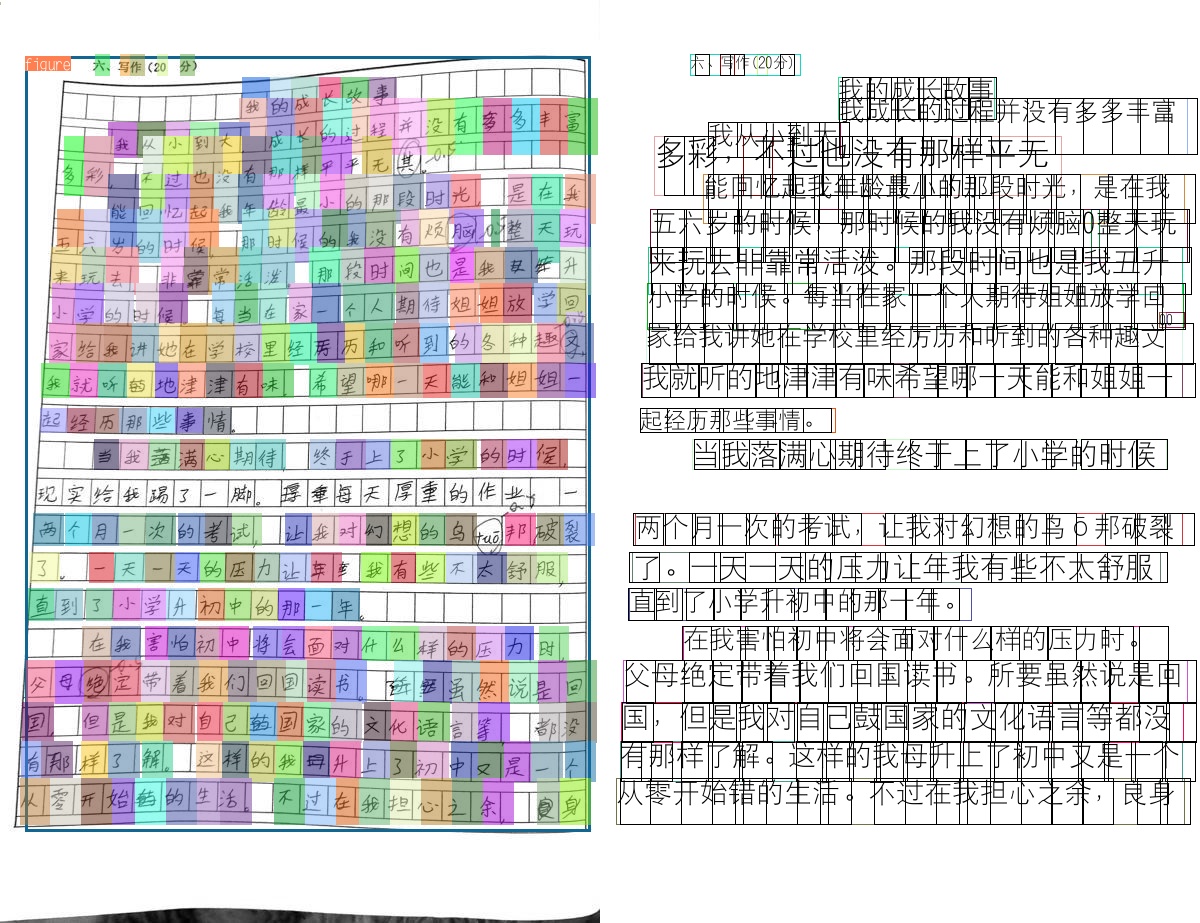 figure
六、写作(20 分)
我的成长故事
我从小到大 成长的过程并没有多多丰富
多彩 不过也没有那样平平无其。-0.5
能回忆起我年龄最小的那段时光, 是在我
五六岁的时候, 那时候的我没有烦脑, 整天玩
来玩去 非常活泼。那段时间也是我 升
小学的时候。每当在家一个人期待姐姐放学回
家给我讲她在学校里经历和听到的各种趣文,
我就听的地津津有味。希望哪一天能和姐姐一
起经历那些事情。
当我满心期待, 终于上了小学的时候,
现实给我踢了一脚。每天厚重的作业 一
两个月一次的考试, 让我对幻想的鸟tuō邦破裂
了。一天一天的压力让 我有些不太舒服,
直到了小学升初中的那一年。
在我害怕初中将会面对什么样的压力时,
父母绝定带着我们回国读书。 虽然说是回
国 但是我对自己国家的文化语言等 都没
有那样了解。这样的我 升上了初中又是一个
从零开始的生活。不过在我担心之余, 身
六、写作(20分)
我的成长故事
我成长的过程并没有多多丰富
我从小到大
多彩，不过也没有那样平无
能回忆起我年龄最小的那段时光，是在我
五六岁的时候，那时候的我没有烦脑0整天玩
来玩去非靠常活泼。那段时间也是我丑升
小学的时候。每当在家一个人期待姐姐放学回
家给我讲她在学校里经厉历和听到的各种趣文
我就听的地津津有味希望哪一天能和姐姐一
起经历那些事情。
当我落满心期待终于上了小学的时候
两个月一次的考试，让我对幻想的鸟ō邦破裂
了。一天一天的压力让年我有些不太舒服
直到了小学升初中的那一年。
在我害怕初中将会面对什么样的压力时。
父母绝定带着我们回国读书。所要虽然说是回
国，但是我对自己鼓国家的文化语言等都没
有那样了解。这样的我母升上了初中又是一个
从零开始错的生活。不过在我担心之余，良身